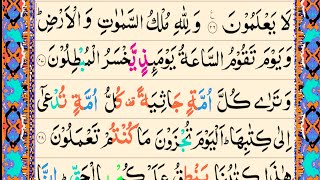 لَا يَعْلَمُوْنَ ۝ وَلِلّٰهِ مُلْكُ السَّمٰوٰتِ وَالْاَرْضِ ؕ
وَيَوْمَ تَقُوْمُ السَّاعَةُ يَوْمَئِذٍ يَّخْسَرُ الْمُبْطِلُوْنَ ۝
وَتَرٰى كُلَّ اُمَّةٍ جَاثِيَةً ۫ كُلُّ اُمَّةٍ تُدْعٰۤى
اِلٰى كِتٰبِهَا ؕ اَلْيَوْمَ تُجْزَوْنَ مَا كُنْتُمْ تَعْمَلُوْنَ ۝
هٰذَا كِتٰبُنَا يَنْطِقُ عَلَيْكُمْ بِالْحَقِّ ؕ اِنَّا